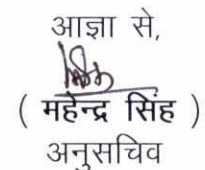 आज्ञा से,
( महेन्द्र सिंह )
अनुसचिव